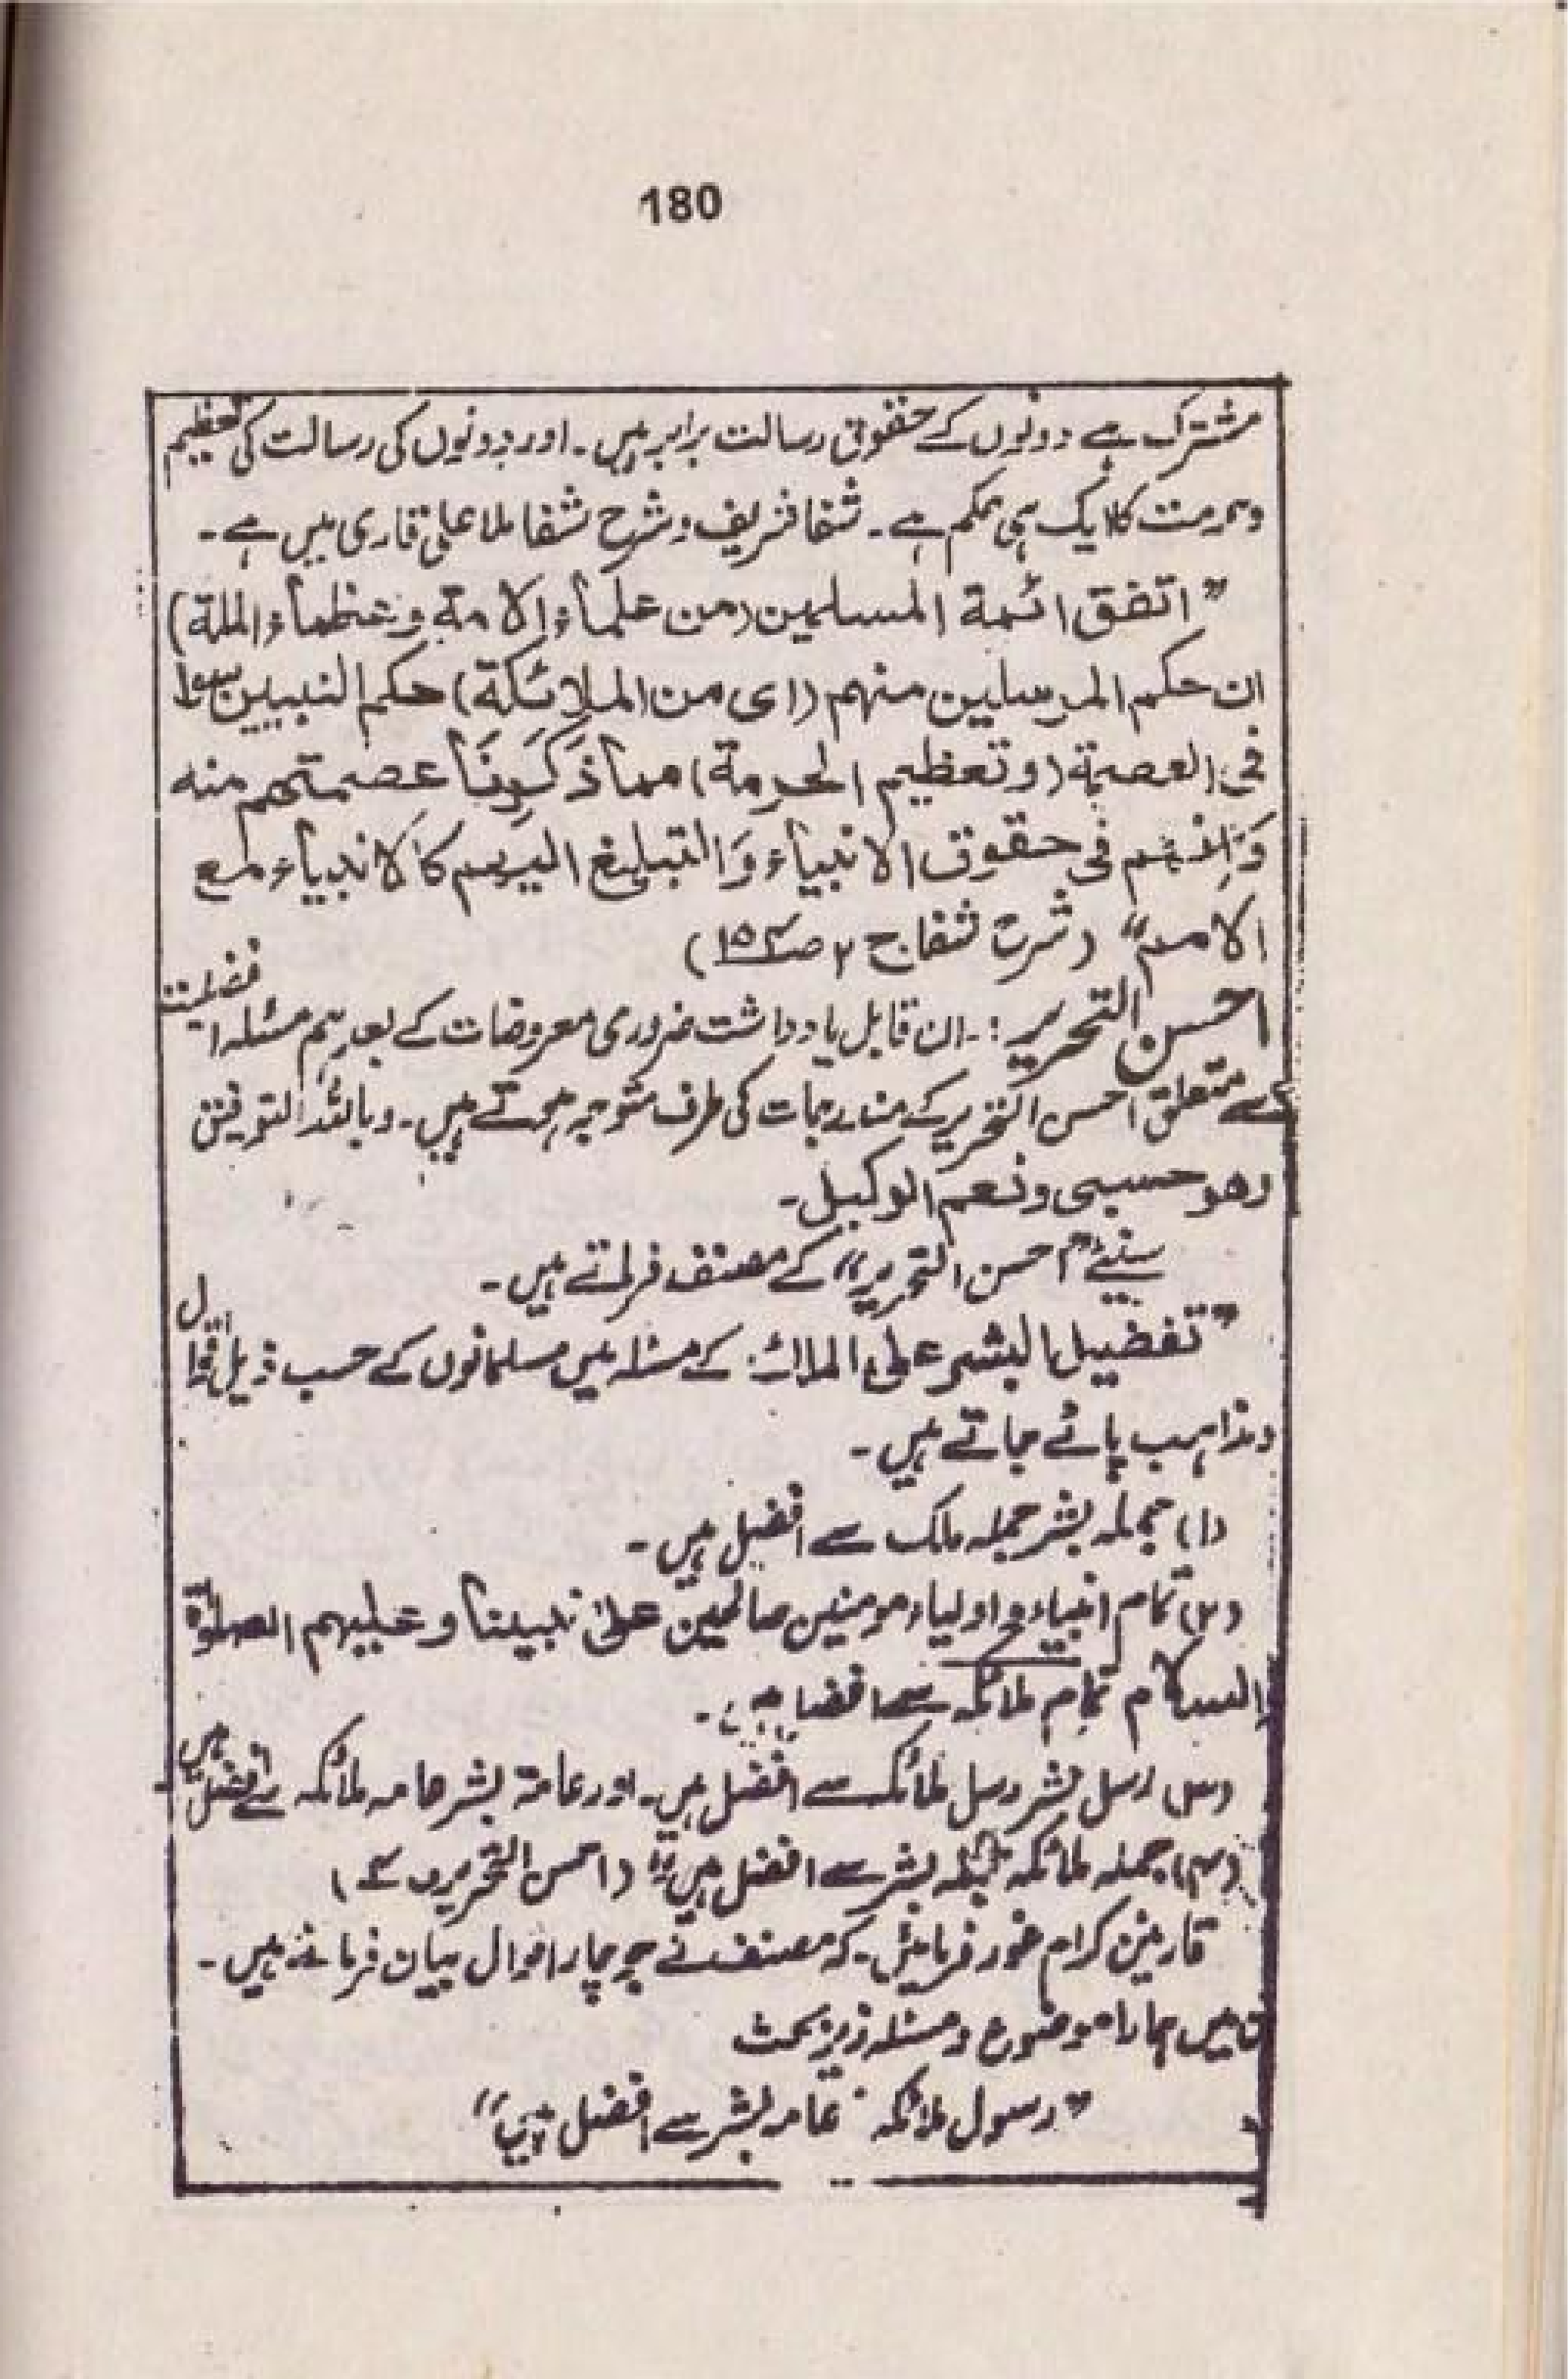 180
مشترک ہے دونوں کے حقوق رسالت برابر ہیں۔ اور دونوں کی رسالت کی تعظیم
وحرمت کا ایک ہی حکم ہے۔ شفا شریف وشرح شفا ملا علی قاری میں ہے۔
”اتفق ائمة المسلمین (من علماء الامة وعظماء الملة)
ان حکم المرسلین منهم (ای من الملائکة) حکم النبیین سواء
فی العصمة (وتعظیم الحرمة) مما ذکرنا عصمتهم منه
وانهم فی حقوق الانبیاء والتبلیغ الیهم کالانبیاء مع
الامم“ (شرح شفا ج ۲ ص
احسن التحریر :۔ ان قابل یادداشت ضروری معروضات کے بعد ہم مسئلہ افضلیت
سے متعلق احسن التحریر کے مندرجات کی طرف متوجہ ہوتے ہیں۔ وباللہ التوفیق
وهو حسبی ونعم الوکیل۔
سنیئے احسن التحریر“ کے مصنف فرماتے ہیں۔
”تفضیل البشر علی الملائکہ کے مسئلہ میں مسلمانوں کے حسب ذیل اقوال
ومذاہب پائے جاتے ہیں۔
(۱) جملہ بشر جملہ ملک سے افضل ہیں۔
(۲) تمام انبیاء و اولیاء مومنین صالحین علی نبینا وعلیہم الصلوٰة
السلام تمام ملائکہ سے افضل ہیں۔
(۳) رسل بشر رسل ملائکہ سے افضل ہیں۔ اور عامۃ بشر عامہ ملائکہ سے افضل ہیں۔
(۴) جملہ ملائکہ جملہ بشر سے افضل ہیں“ (احسن التحریر ص
قارئین کرام غور فرمائیں۔ کہ مصنف نے جو چار اقوال بیان فرمائے ہیں۔
ن میں ہمارا موضوع ومسئلہ زیر بحث
”رسول ملائکہ عامہ بشر سے افضل ہیں“